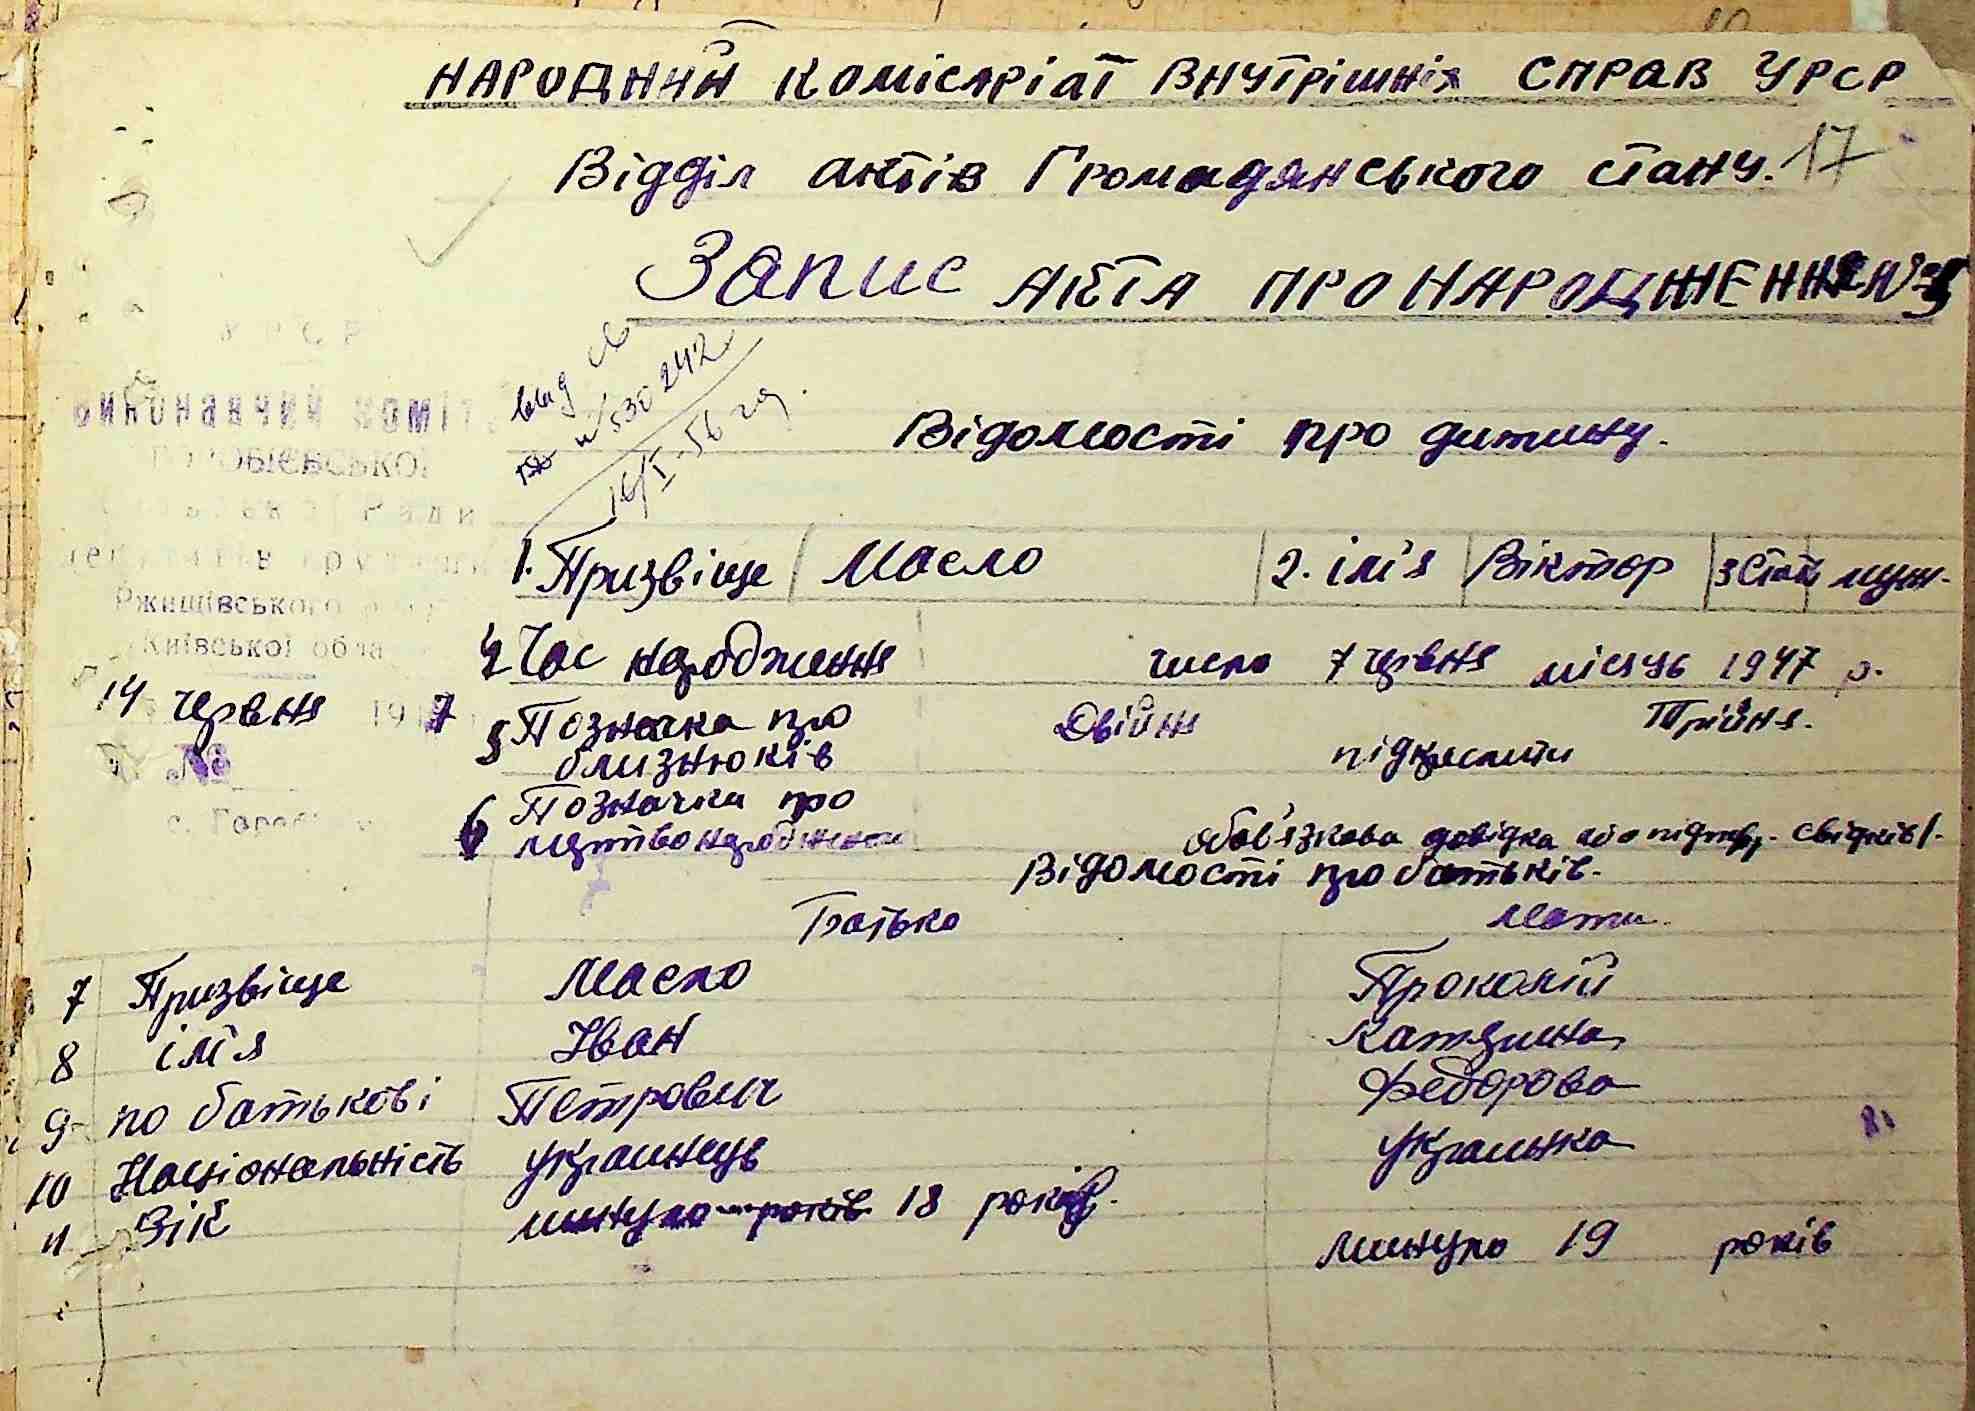 НАРОДНИЙ КОМІСАРІАТ ВНУТРІШНІХ СПРАВ УРСР
Відділ актів Громадянського стану. 17
Запис АКТА ПРО НАРОДЖЕННЯ № 5
вид
530242
16/I-56 г.
УРСР
виконавчий коміт
Ржищівського
Київської обла
14 червня 19 7
№
Відомості про дитину.
1. Призвіще Масло 2. ім'я Віктор 3 Стать муж.
4 Час народження число 7 червня місяць 1947 р.
5 Позначка про близнюків Двійня підкреслити Трійня.
6 Позначка про мертвонароджених обов'язкова довідка або підтвр. свідків/.
Відомості про батьків.
Батько Мати
7 Призвіще Масло Прокопій
8 ім'я Іван Катерина
9 по батькові Петрович Федорова
10 Національність українець українка
11 Вік минуло років 18 років. минуло 19 років